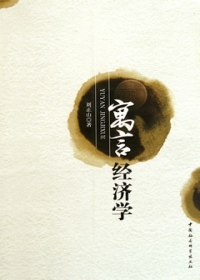 寓言
经济学
YUYAN JINGJIXUE
刘正山 著
中国社会科学出版社